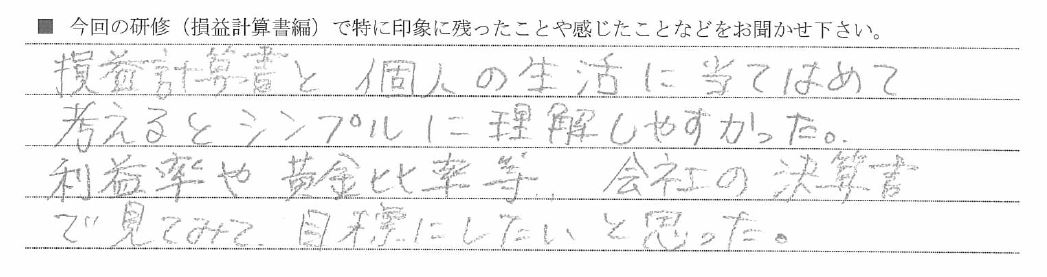 ■ 今回の研修（損益計算書編）で特に印象に残ったことや感じたことなどをお聞かせ下さい。
損益計算書と個人の生活に当てはめて
考えるとシンプルに理解しやすかった。
利益率や黄金比率等、会社の決算書
で見てみて、目標にしたいと思った。